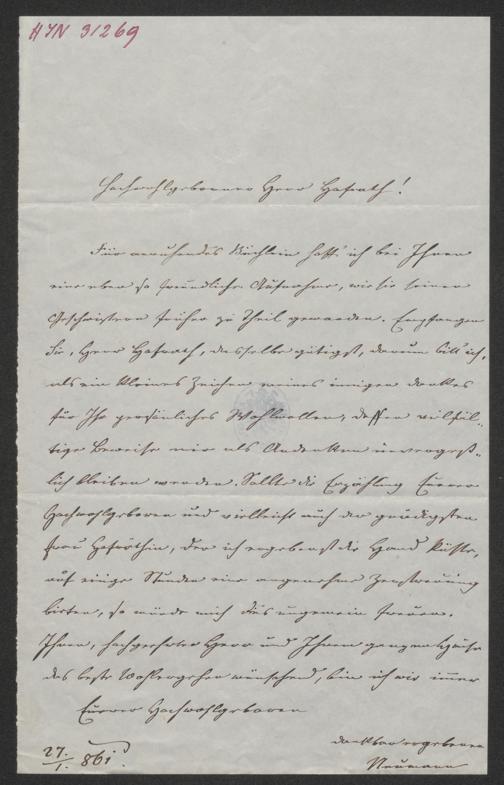 HIN 91269
Hochwohlgeborener Herr Hofrath!
Für anruhendes Büchlein hoff' ich bei Ihnen
eine eben so freundliche Aufnahme, wie sie seinen
Geschwistern früher zu Theil geworden. Empfangen
Sie, Herr Hofrath, dasselbe gütigst, darum bitt' ich,
als ein kleines Zeichen meines innigen Dankes
für Ihr persönliches Wohlwollen, dessen vielfäl-
tige Beweise mir als Andenken unvergeß-
lich bleiben werden. Sollte die Erzählung Euerer
Hochwohlgeboren und vielleicht auch der gnädigsten
Frau Hofräthin, der ich ergebenst die Hand küsse,
auf einige Stunden eine angenehme Zerstreuung
bieten, so würde mich dies ungemein freuen.
Ihnen, hochgeehrter Herr und Ihrem ganzen Hause
das beste Wohlergehen wünschend, bin ich wie immer
Euerer Hochwohlgeboren
dankbar ergebener
27./1. 861.
Neumann